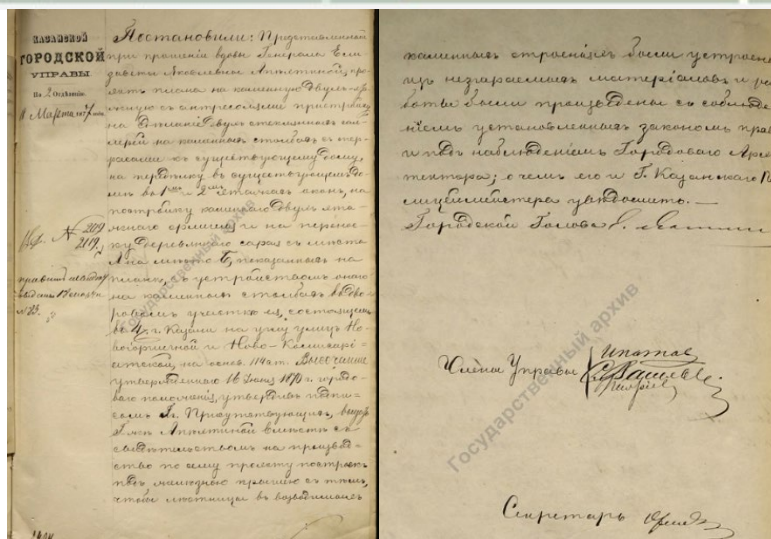 КАЗАНСКОЙ
ГОРОДСКОЙ
УПРАВЫ
По 2 Отделенію.
11 Марта 1877 года.
№ 209
2119
Постановили: Представленной
при прошеніи вдовы Генерала Ели
заветы Яковлевны Апехтиной, про
ектъ плана на каменную двухъ-эта
жную съ антресолями пристройку,
на каменныхъ столбахъ съ тер
расами къ существующему дому,
на передѣлку въ существующемъ до
мѣ въ 1мъ и 2мъ этажахъ оконъ, на
постройку каменнаго двухъ эта
жнаго флигеля и на перенос
ку деревяннаго сарая съ мѣста
А на мѣсто Б, показанныхъ на
планѣ, съ устройствомъ онаго
на каменныхъ столбахъ въ дво
ровомъ участкѣ ея, состоящемъ
въ 4 ч. г. Казани на углу улицъ Но
вогоршечной и Ново-Комисарі
атской, на основ. 114 ст. Высочайше
утвержденнаго 16 Іюня 1870 г. городо
ваго положенія, утвердивъ подпи
сомъ Гг. Присутствующихъ, выдать
Г-жѣ Апехтиной вмѣстѣ съ
свидѣтельствомъ на производ
ство по сему проекту построекъ
подъ надзоромъ съ тѣмъ,
чтобы лѣстницы въ возводимыхъ
каменныхъ строеніяхъ были устроены
изъ незгараемыхъ матеріаловъ и ра
боты были произведены съ соблюде
ніемъ установленныхъ закономъ прав
и подъ наблюденіемъ Городоваго Архи
тектора; о чемъ его и Г. Казанскаго По
лицмейстера увѣдомить. —
Городской Голова
Члены Управы
Секретарь
Государственный архив
Государственный архив